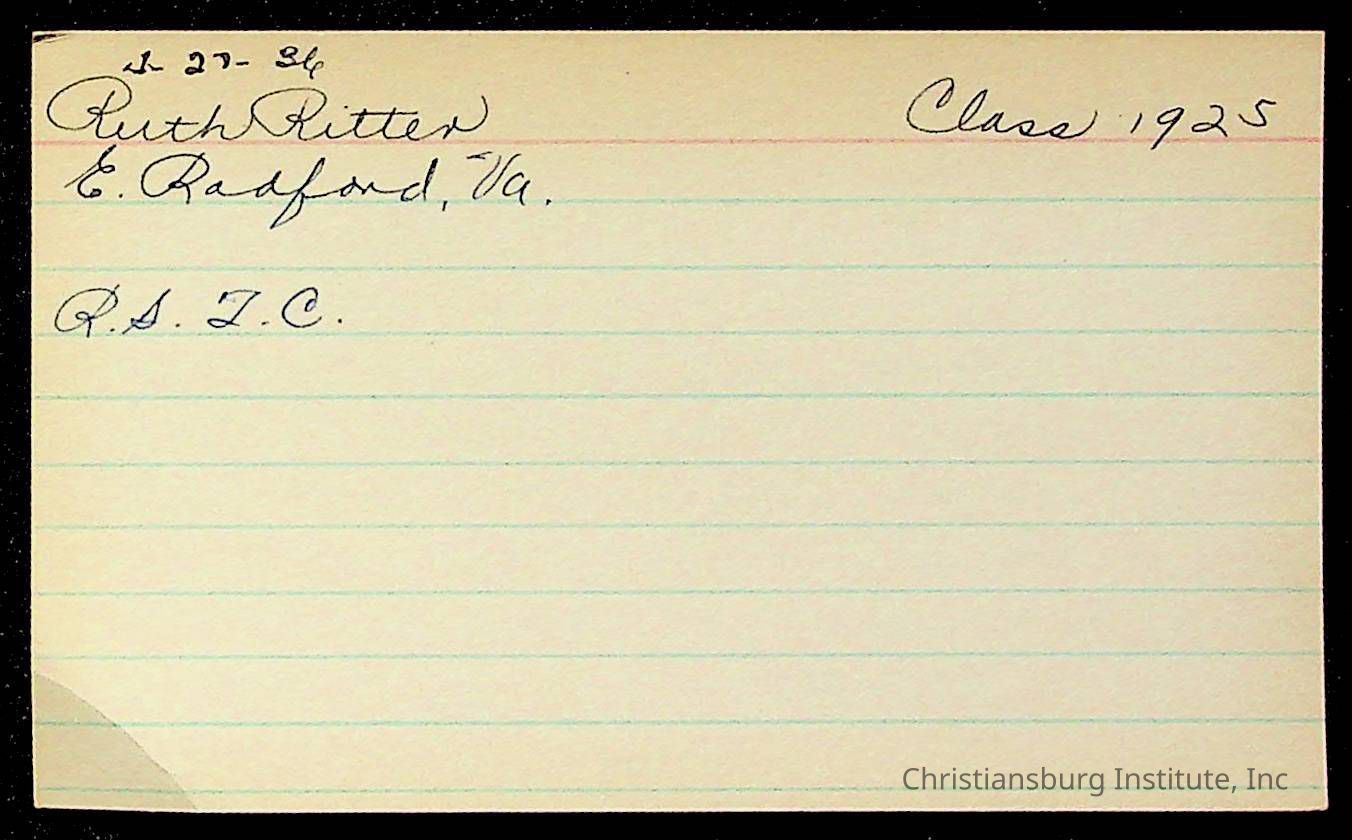 27-36
Ruth Ritter Class 1925
E. Radford, Va.
R. S. T. C.
Christiansburg Institute, Inc